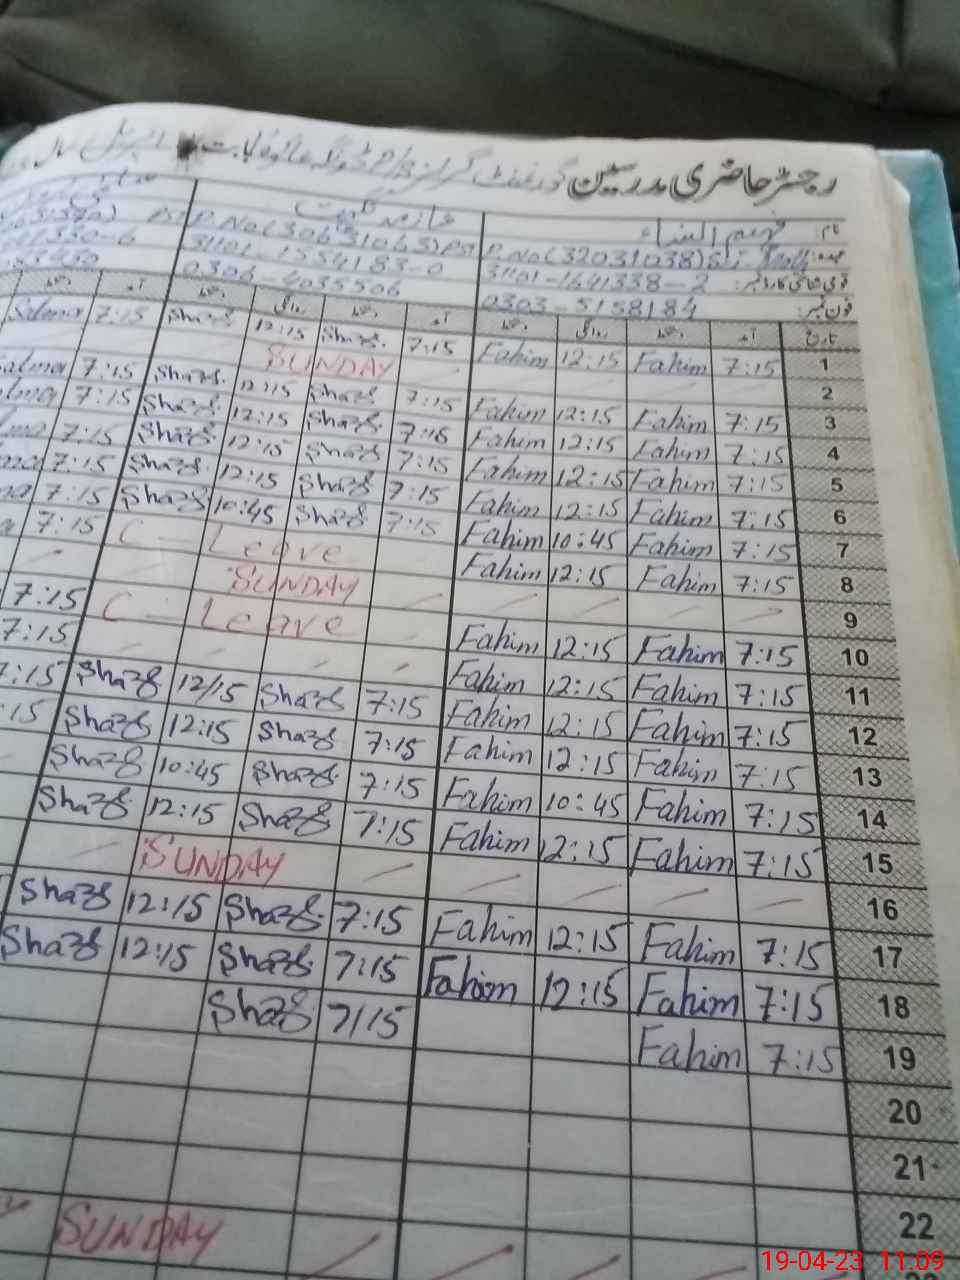 رجسٹر حاضری مدرسین گورنمنٹ گرلز
نام: فہیم النساء
عہدہ: P.No(32031038) P.No(30631043)PST
قومی شناختی کارڈ نمبر: 31101-1641338-2 31101-1554183-0
فون نمبر: 0303-5158184 0306-4035506
تاریخ آمد دستخط روانگی دستخط آمد دستخط روانگی دستخط آمد دستخط
Salma 7:15 Shazf 12:15 Shazf 7:15 Fahim 12:15 Fahim 7:15 1
SUNDAY 2
alma 7:15 Shazf 12:15 Shazf 7:15 Fahim 12:15 Fahim 7:15 3
lma 7:15 Shazf 12:15 Shazf 7:15 Fahim 12:15 Fahim 7:15 4
ma 7:15 Shazf 12:15 Shazf 7:15 Fahim 12:15 Fahim 7:15 5
ma 7:15 Shazf 12:15 Shazf 7:15 Fahim 12:15 Fahim 7:15 6
na 7:15 Shazf 10:45 Shazf 7:15 Fahim 10:45 Fahim 7:15 7
a 7:15 C - Leave Fahim 12:15 Fahim 7:15 8
SUNDAY 9
7:15 C - Leave Fahim 12:15 Fahim 7:15 10
7:15 Fahim 12:15 Fahim 7:15 11
7:15 Shazf 12/15 Shazf 7:15 Fahim 12:15 Fahim 7:15 12
:15 Shazf 12:15 Shazf 7:15 Fahim 12:15 Fahim 7:15 13
Shazf 10:45 Shazf 7:15 Fahim 10:45 Fahim 7:15 14
Shazf 12:15 Shazf 7:15 Fahim 12:15 Fahim 7:15 15
SUNDAY 16
Shazf 12:15 Shazf 7:15 Fahim 12:15 Fahim 7:15 17
Shazf 12:15 Shazf 7:15 Fahim 12:15 Fahim 7:15 18
Shazf 7/15 Fahim 7:15 19
20
21
22
SUNDAY
19-04-23 11:09